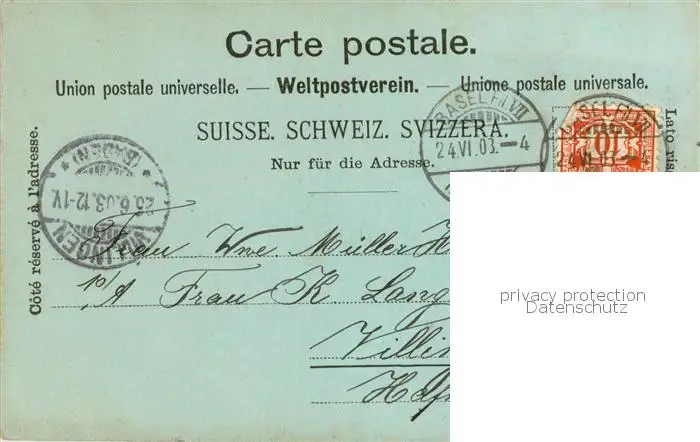 Carte postale.
Union postale universelle. — Weltpostverein. — Unione postale universale.
SUISSE. SCHWEIZ. SVIZZERA.
Nur für die Adresse.
Côté réservé à l'adresse.
Lato ris
BASEL Fil. VII
24.VI.03.–4
BASEL Fil. VII
24.VI.03.–4
10
VILLINGEN
26.6.03.12-1V.
* (BADEN) *
Frau Wne. Müller H
p/A Frau K Lang
Villin
privacy protection
Datenschutz